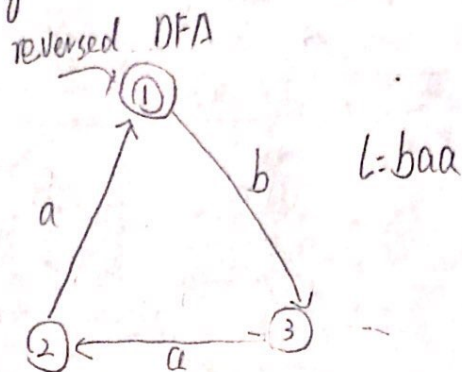 reversed DFA
1
b
L=baa
a
2
a
3